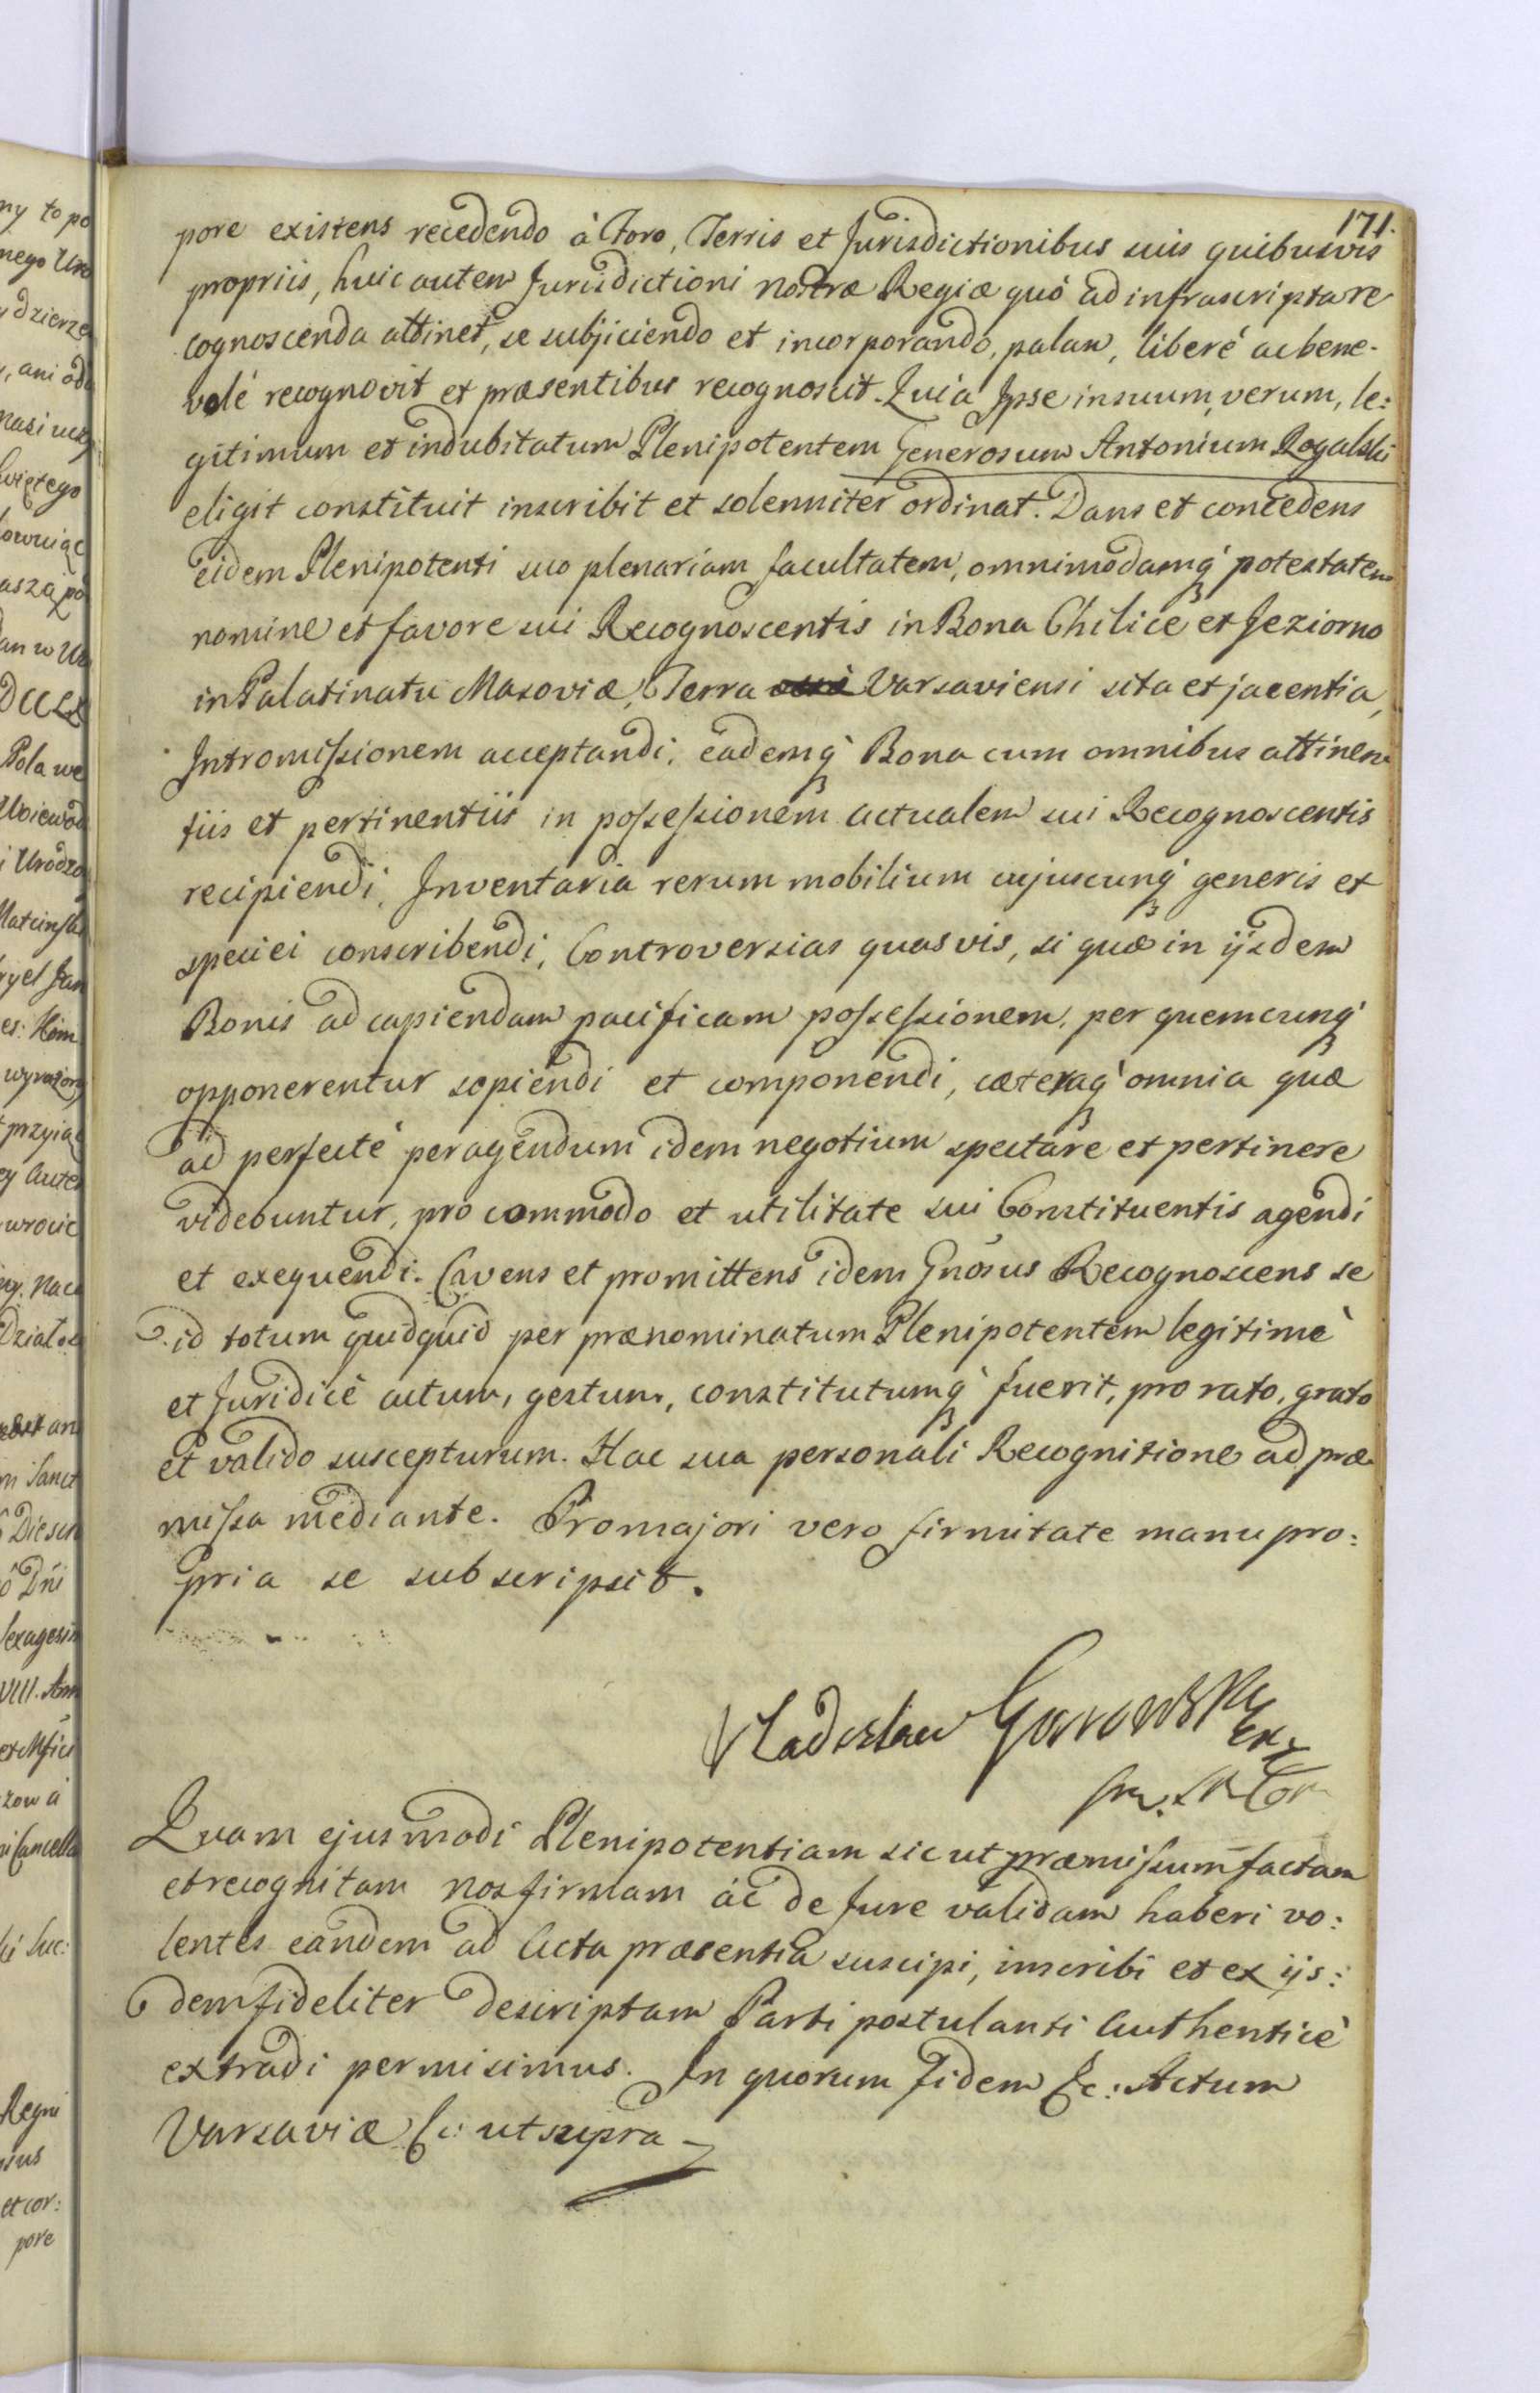 171.
pore existens recedendo à Foro, Terris et Jurisdictionibus suis quibusvis
propriis, huic autem Jurisdictioni nostræ Regiæ quò ad infrascripta re
cognoscenda attinet, se subjiciendo et incorporando, palam, liberè ac bene-
volè recognovit et præsentibus recognoscit. Quia Ipse in suum, verum, le:
gitimum et indubitatum Plenipotentem Generosum Antonium Rogalski
eligit constituit inscribit et solenniter ordinat. Dans et concedens
eidem Plenipotenti suo plenariam facultatem, omnimodamq; potestatem
nomine et favore sui Recognoscentis in Bona Chilice et Jeziorno
in Palatinatu Masoviæ, Terra Varsaviensi sita et jacentia,
Intromissionem acceptandi, eademq; Bona cum omnibus attinen
tiis et pertinentiis in possessionem actualem sui Recognoscentis
recipiendi, Inventaria rerum mobilium cujuscunq; generis et
speciei conscribendi, Controversias quasvis, si quæ in ijsdem
Bonis ad capiendam pacificam possessionem, per quemcunq;
opponerentur sopiendi et componendi, cæteraq; omnia quæ
ad perfectè peragendum idem negotium spectare et pertinere
videbuntur, pro commodo et utilitate sui Constituentis agendi
et exequendi. Cavens et promittens idem Gnosus Recognoscens se
id totum quidquid per prænominatum Plenipotentem legitimè
et Juridicè actum, gestum, constitutumq; fuerit, pro rato, grato
et valido suscepturum. Hac sua personali Recognitione ad præ
missa mediante. Pro majori vero firmitate manu pro:
pria se subscripsit.
Vladislaw Gurowski
Quam ejusmodi Plenipotentiam sic ut præmissum factam
et recognitam nos firmam ac de Jure validam haberi vo:
lentes eandem ad Acta præsentia suscipi, inscribi et ex ijs:
dem fideliter descriptam Parti postulanti Authenticè
extradi permisimus. In quorum fidem &c: Actum
Varsaviæ &c: ut supra
ny to po
nego Uro
dzierze
, ani od
więtego
an w
DCCLX
Pola we
i Urodzo
wyrażon
przyiąć
ey Aute
wrocic
m Sanct
Dni
VIII.
Cancella
Suc:
Regni
sus
et cor:
pore